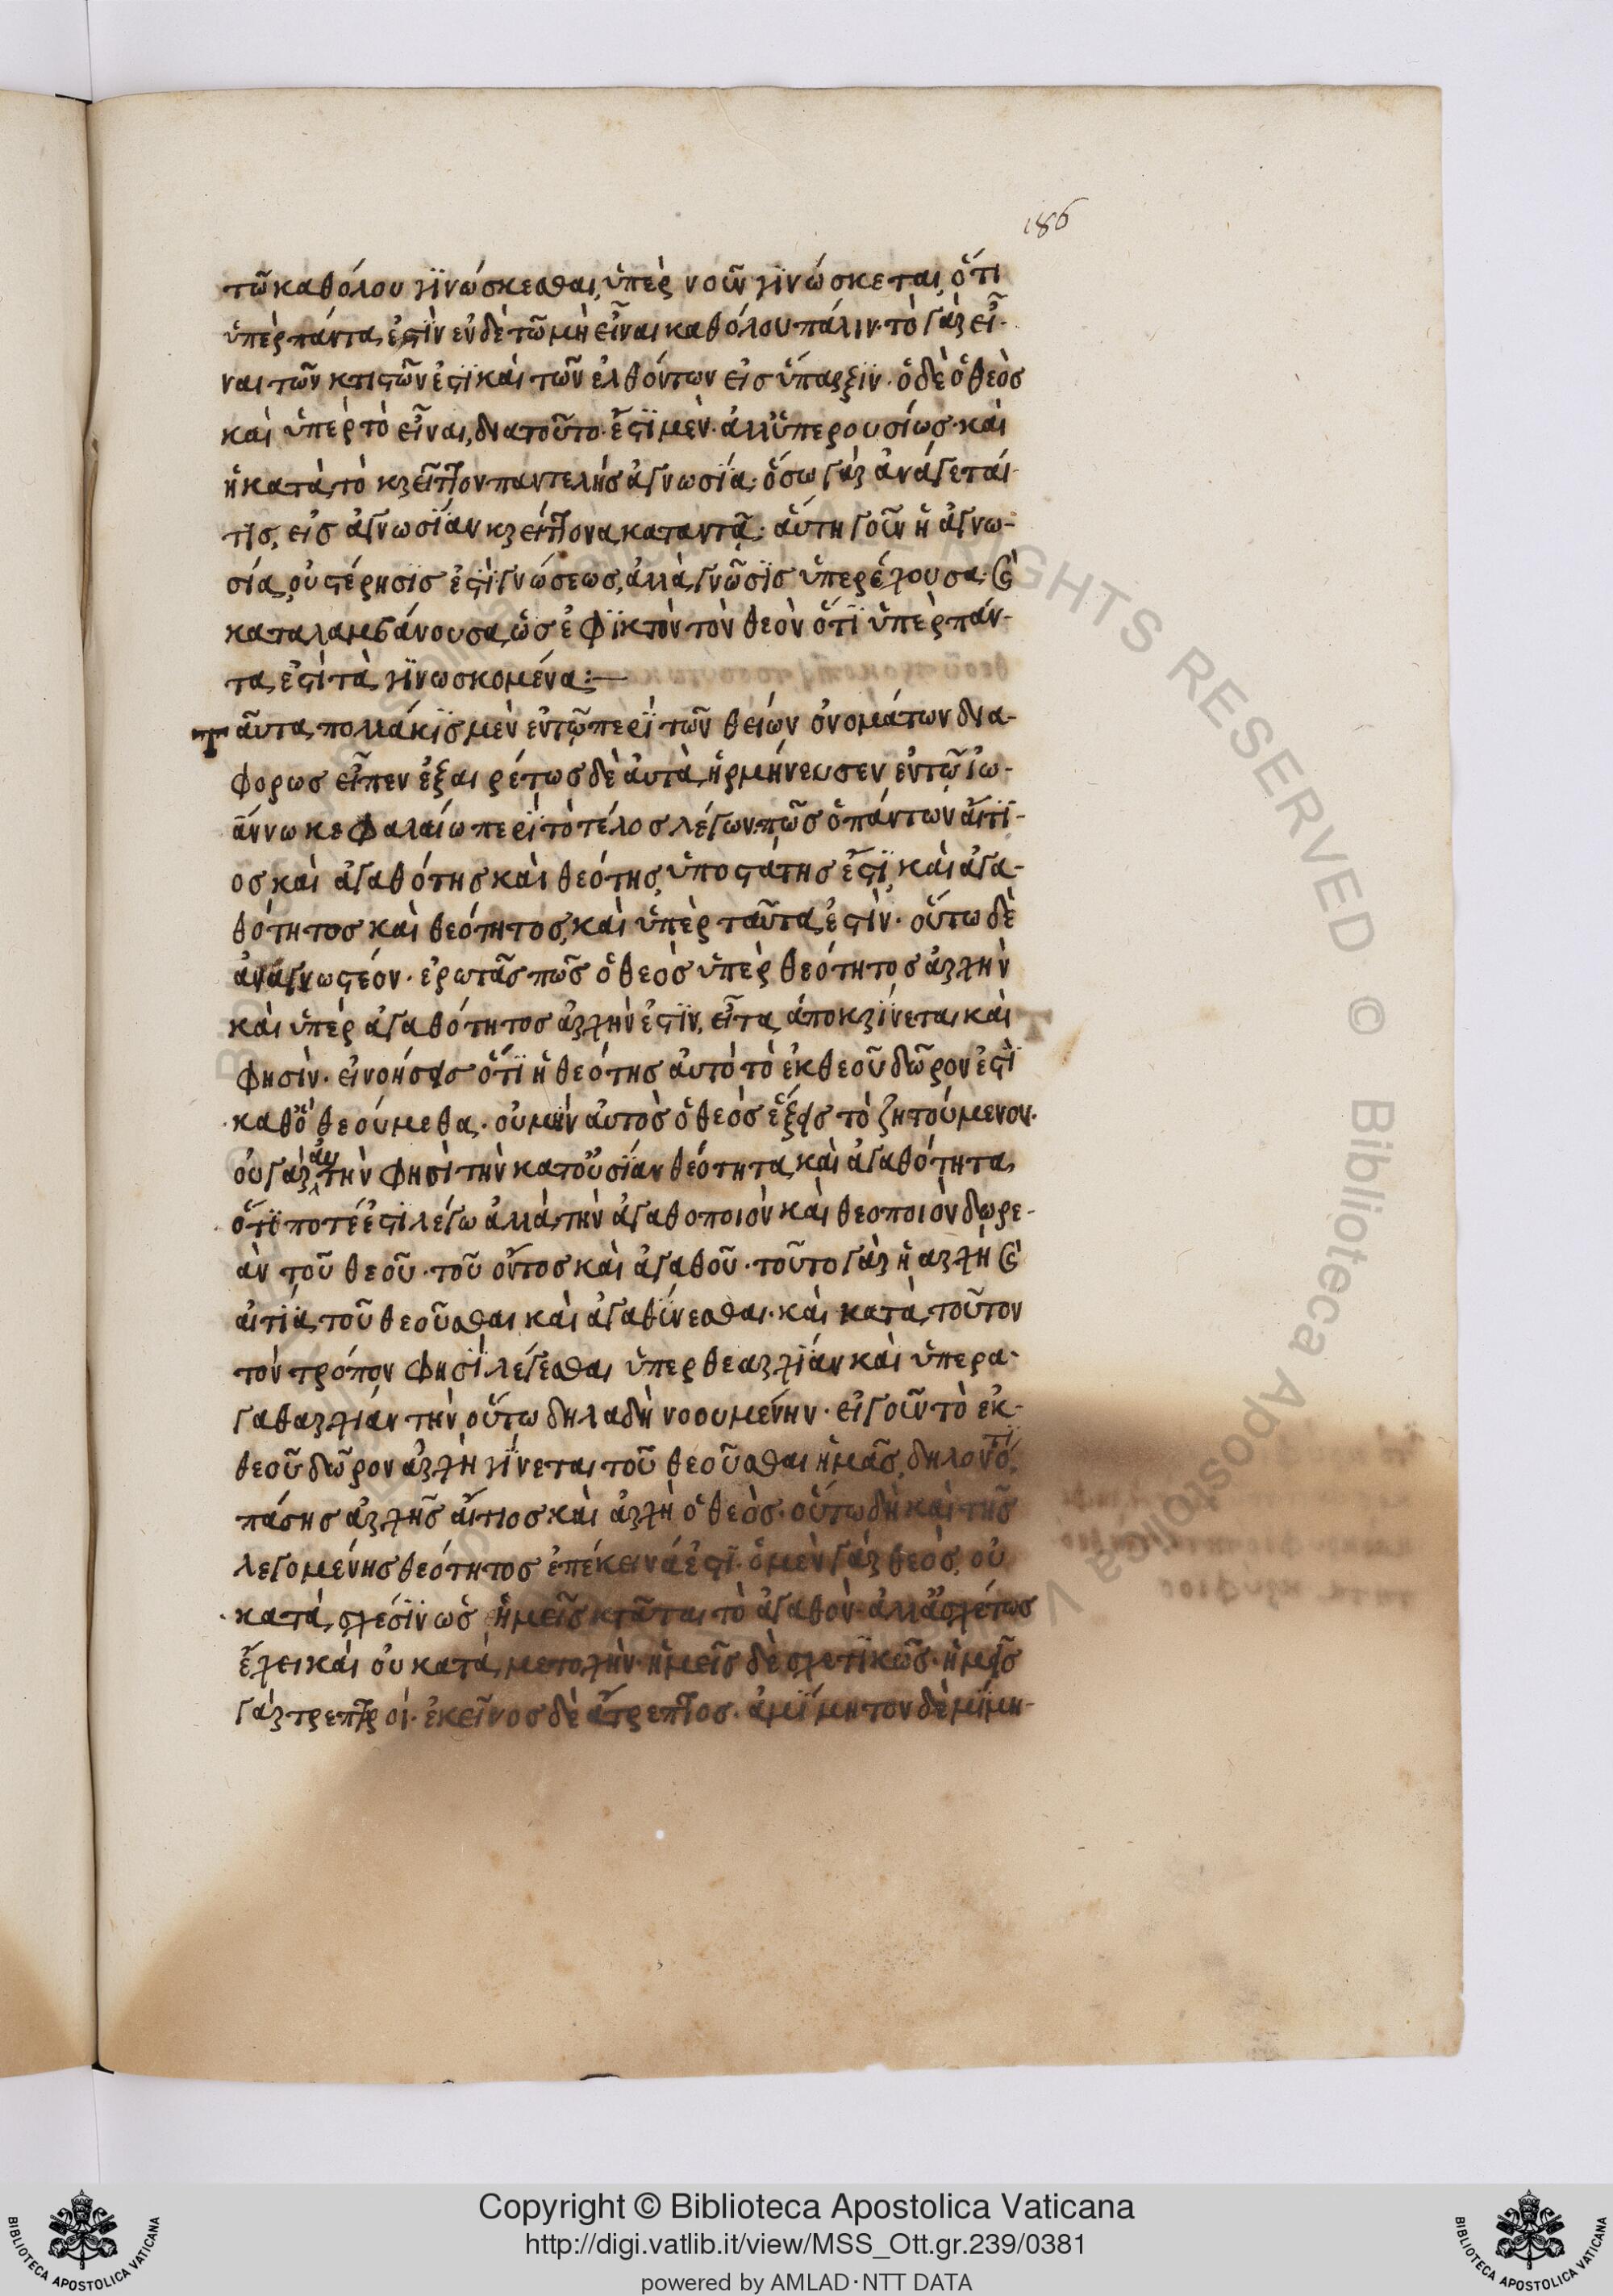 186
τῶ καθόλου γϊνώσκεσθαι, ὑπὲρ νοῦν γϊνώσκεται, ὅτι
ὑπὲρ πάντα ἐστὶν ἐν δὲ τῶ μὴ εἶναι καθόλου πάλιν· τὸ γὰρ εἶ-
ναι τῶν κτιστῶν ἐστὶ καὶ τῶν ἐλθόντων εἰσ ὕπαρξϊν· ὁ δὲ ὁ θεὸσ
καὶ ὑπὲρ τὸ εἶναι, διατοῦτο ἔστϊ μὲν· ἀλλ' ὑπερουσίως· καὶ
ἡ κατὰ τὸ κρεῖττον παντελὴσ ἀγνωσϊά· ὅσω γὰρ ἀνάγεταί
τϊσ, εἰσ ἀγνωσΐαν κρείττονα καταντᾷ· ἅυτη γοῦν ἡ ἀγνω-
σία, οὐ στέρησϊσ ἐστὶ γνώσεως, ἀλλὰ γνῶσϊσ ὑπερέχουσα· καὶ
καταλαμβάνουσα, ὡσ ἐφϊκτὸν τὸν θεὸν ὅτϊ ὑπὲρ πάν-
τα ἐστὶ τὰ γϊνωσκομένα:—
Ταῦτα πολλάκϊσ μὲν ἐν τῷ περὶ τῶν θείων ὀνομάτων δια-
φορωσ εἶπεν ἐξαιρέτωσ δὲ ἀυτὰ ἡρμήνευσεν ἐν τῷ ἰω-
άννω κεφαλαίω περὶ τὸ τέλοσ λέγων· πῶσ ὁ πάντων ἄιτϊ-
οσ καὶ ἀγαθότησ καὶ θεότησ, ὑποστάτησ ἐστϊ, καὶ ἀγα-
θότητοσ καὶ θεότητοσ, καὶ ὑπὲρ ταῦτα ἐστὶν· οὕτω δὲ
ἀναγνωστέον· ἐρωτᾶσ πῶσ ὁ θεὸσ ὑπὲρ θεότητοσ ἀρχὴν
καὶ ὑπὲρ ἀγαθότητοσ ἀρχὴν ἐστϊν, εἶτα ἀποκρίνεται καὶ
φησὶν· εἰ νοήσεισ ὅτϊ ἡ θεότησ ἀυτὸ τὸ ἐκ θεοῦ δῶρον ἐστὶ
καθὸ θεούμεθα· οὐ μὴν ἀυτὸσ ὁ θεόσ ἕξεισ τὸ ζητούμενον·
οὐ γὰρ ἀυτὴν φησὶ τὴν κατ' οὐσίαν θεότητα καὶ ἀγαθότητα,
ὅτϊ ποτέ ἐστι λέγω ἀλλὰ τὴν ἀγαθοποιὸν καὶ θεοποιὸν δωρε-
ὰν τοῦ θεοῦ· τοῦ ὄντοσ καὶ ἀγαθοῦ· τοῦτο γὰρ ἡ αρχὴ καὶ
ἀιτϊά τοῦ θεοῦσθαι καὶ ἀγαθύνεσθαι· καὶ κατὰ τοῦτον
τὸν τρόπον φησὶ λέγεσθαι ὑπερθεαρχϊάν καὶ ὑπερα-
γαθαρχϊάν τὴν οὕτω δηλαδὴ νοουμένην· εἰ γοῦν τὸ ἐκ
θεοῦ δῶρον ἀρχὴ γΐνεται τοῦ θεοῦσθαι ἡμᾶσ, δηλονότϊ,
πάσησ ἀρχῆσ ἄιτιοσ καὶ ἀρχὴ ὁ θεὸσ· οὕτω δὴ καὶ τῆσ
λεγομένησ θεότητοσ ἐπέκεινά ἐστϊ· ὁ μὲν γὰρ θεὸσ, οὐ
κατὰ σχέσϊν ὡσ ἡμεῖσ κτᾶται τὸ ἀγαθὸν· ἀλλ' ἀσχέτωσ
ἔχει καὶ οὐ κατὰ μετοχὴν· ἡμεῖσ δὲ σχετϊκῶσ· ἡμεῖσ
γὰρ τρεπτοί· ἐκεῖνοσ δὲ ἄτρεπτοσ· ἀμϊμητον δὲ μϊμη-
Copyright © Biblioteca Apostolica Vaticana
http://digi.vatlib.it/view/MSS_Ott.gr.239/0381
powered by AMLAD·NTT DATA